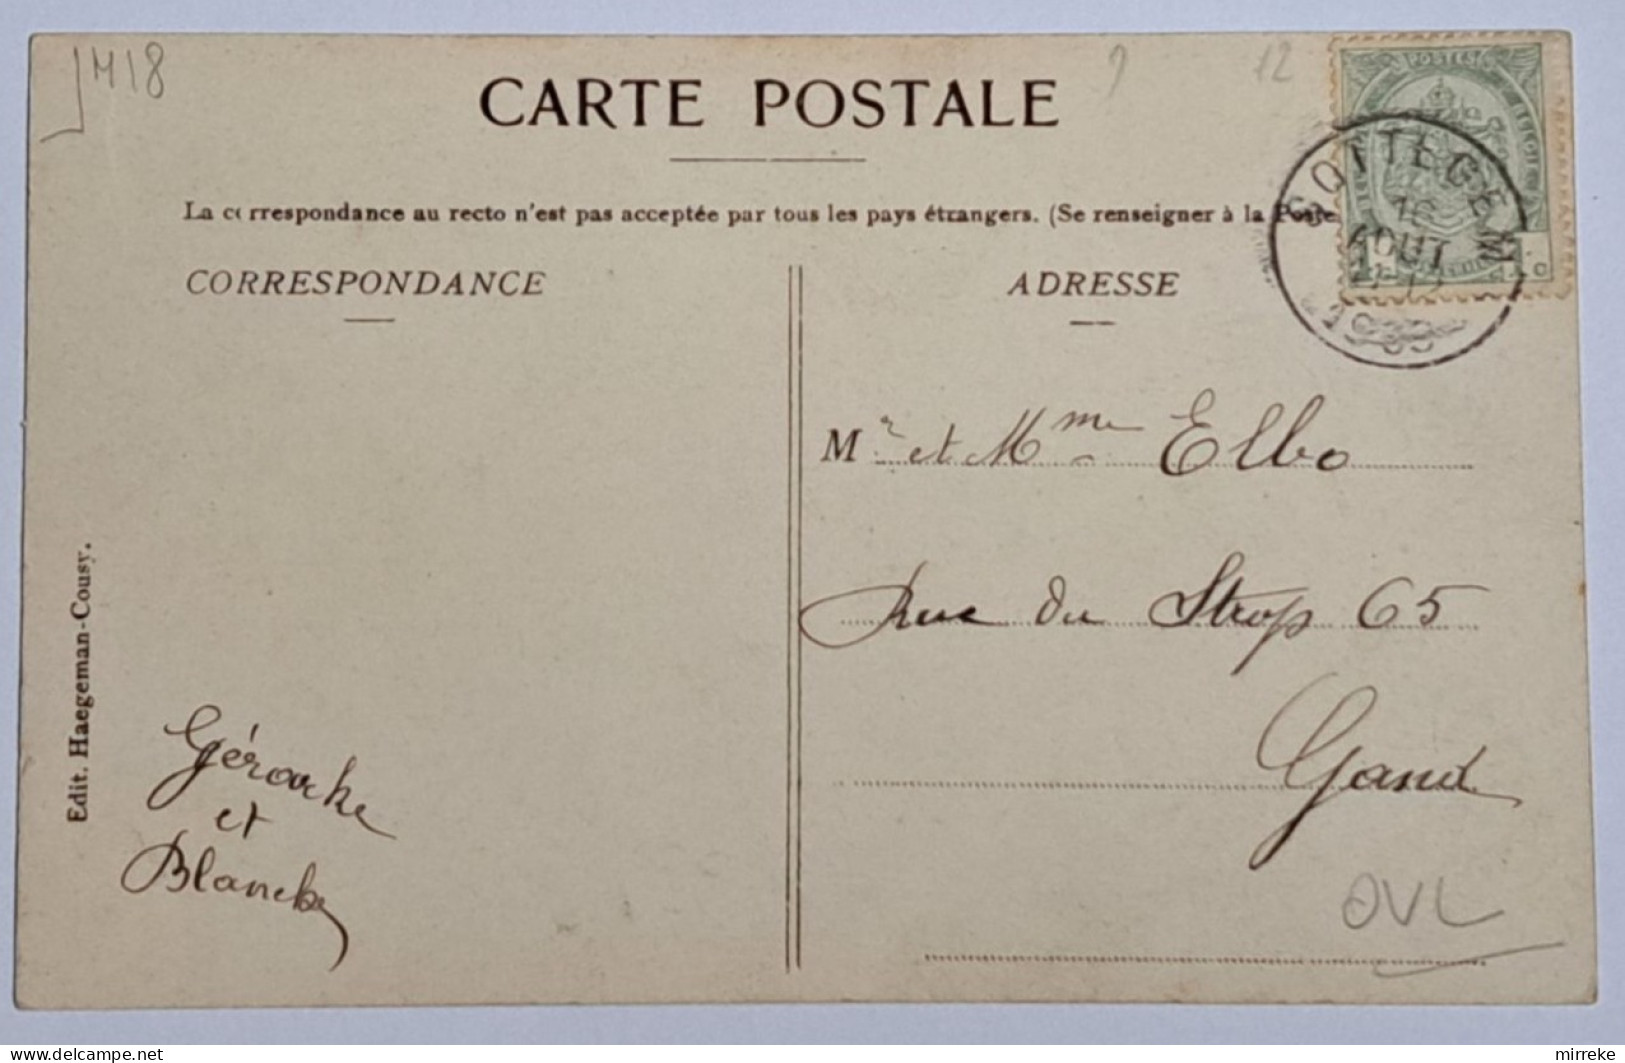 M18
9
12
CARTE POSTALE
La correspondance au recto n'est pas acceptée par tous les pays étrangers. (Se renseigner à la Poste
POSTES
SOTTEGEM
AOUT
CORRESPONDANCE
ADRESSE
Mr et Mme Elbo
Rue du Strop 65
Gand
Edit. Haegeman-Cousy.
et
OVL
mirreke